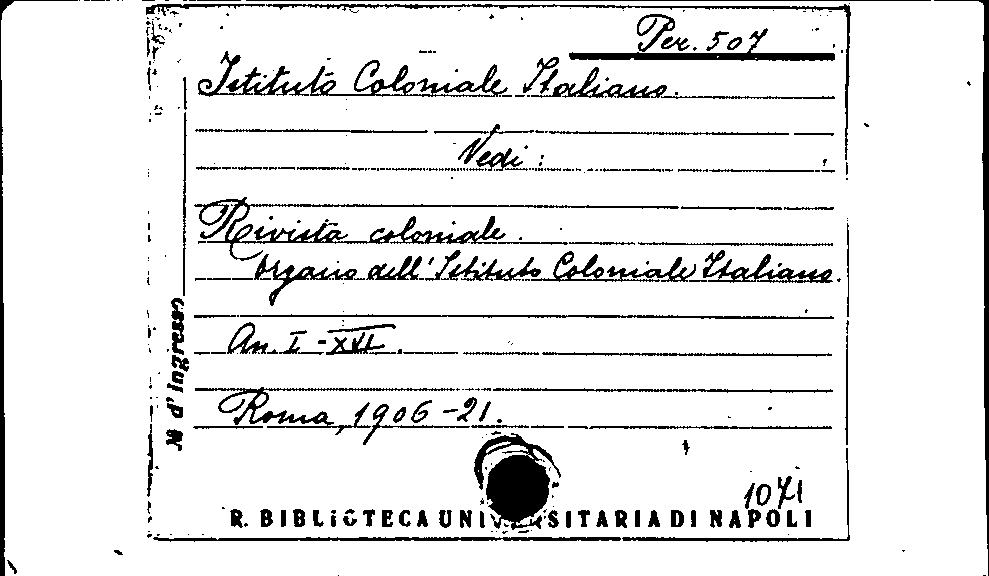 Per. 507
Istituto Coloniale Italiano.
Vedi :
Rivista coloniale.
Organo dell' Istituto Coloniale Italiano.
An. I - XVI.
Roma, 1906-21.
N d' ingresso
1071
R. BIBLIOTECA UNIVERSITARIA DI NAPOLI